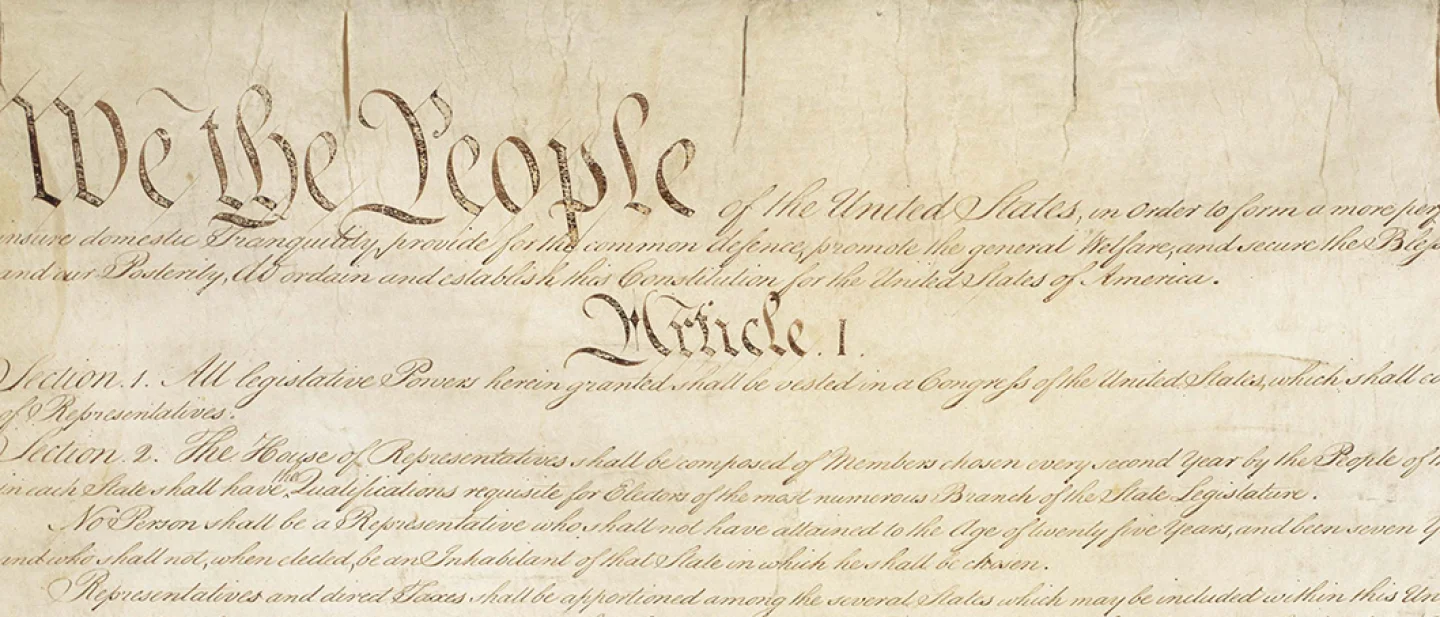 We the People of the United States, in Order to form a more per
insure domestic Tranquility, provide for the common defence, promote the general Welfare, and secure the Bless
and our Posterity, do ordain and establish this Constitution for the United States of America.
Article. I.
Section. 1. All legislative Powers herein granted shall be vested in a Congress of the United States, which shall co
of Representatives.
Section. 2. The House of Representatives shall be composed of Members chosen every second Year by the People of
in each State shall have the Qualifications requisite for Electors of the most numerous Branch of the State Legislature.
No Person shall be a Representative who shall not have attained to the Age of twenty five Years, and been seven Y
and who shall not, when elected, be an Inhabitant of that State in which he shall be chosen.
Representatives and direct Taxes shall be apportioned among the several States which may be included within this Un